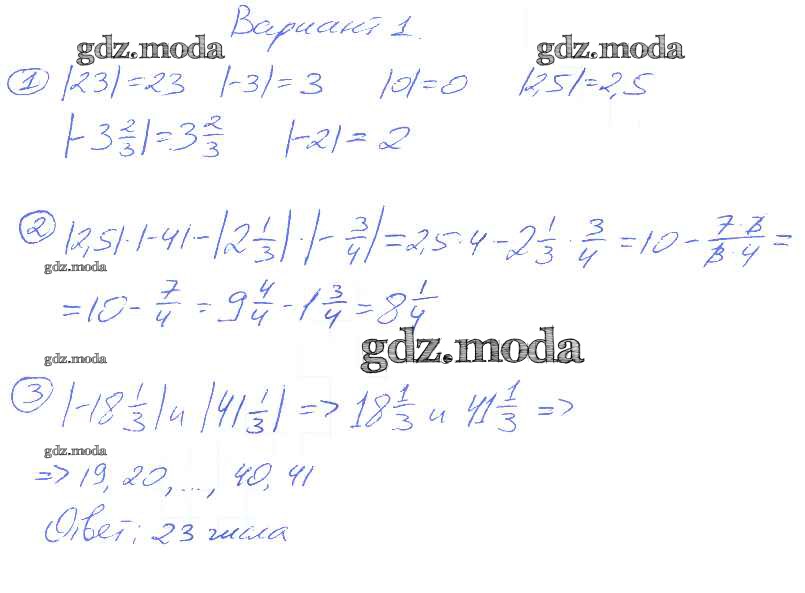 Вариант 1.
gdz.moda gdz.moda
① |23|=23 |-3|=3 |0|=0 |2,5|=2,5
|-3 2/3|=3 2/3 |-2|=2
② |2,5|·|-4|-|2 1/3|·|-3/4|=2,5·4-2 1/3·3/4=10-7·3/3·4=
gdz.moda
=10-7/4=9 4/4-1 3/4=8 1/4
gdz.moda gdz.moda
③ |-18 1/3| и |41 1/3| => 18 1/3 и 41 1/3 =>
gdz.moda
=> 19, 20, ..., 40, 41
Ответ: 23 числа